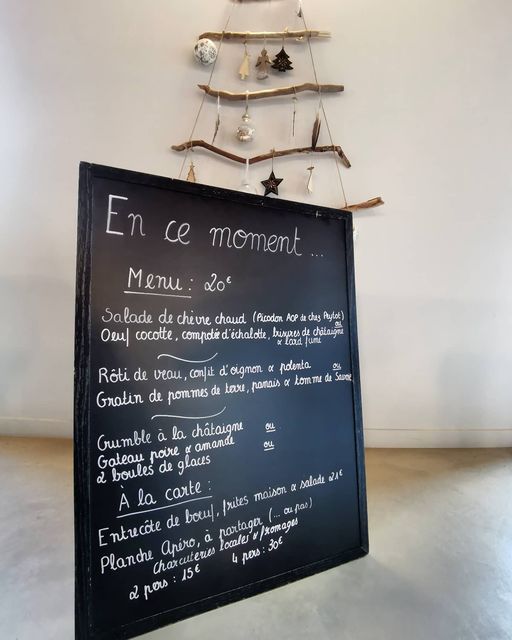 En ce moment ...
Menu : 20€
Salade de chèvre chaud (Picodon AOP de chez Peytot)
ou
Oeuf cocotte, compotée d'échalotte, brisures de châtaigne
& lard fumé
Rôti de veau, confit d'oignon & polenta ou
Gratin de pommes de terre, panais & tomme de Savoie
Crumble à la châtaigne ou
Gateau poire & amande ou
2 boules de glaces
A la carte :
Entrecôte de boeuf, frites maison & salade 21€
Planche Apéro, à partager (... ou pas)
charcuteries locales & fromages
2 pers : 15€ 4 pers : 30€